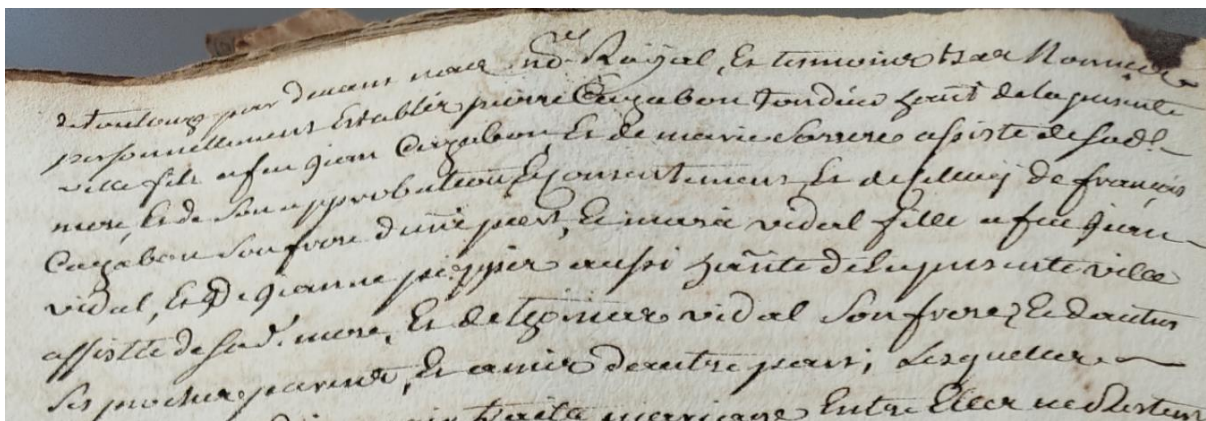 de toulouse par devant nous no.re Royal, Et temoins bas Nommés
personnellement Establis pierre Cazabon tondeur hant de la presente
ville fils a feu jean Cazabon, Et de marie Sorrere assiste de sad.
mere, Et de Son approbation Et Consentement Et de celluy de françois
Cazabon Son frere d'une part, Et marie vidal fille a feu jean
vidal, Et de jeanne aussi hante de la presente ville
assistée de sad. mere, Et de vidal Son frere, Et dautres
Ses proches parents, Et amis dautre part; Lesquelles
mariage Entre Elles